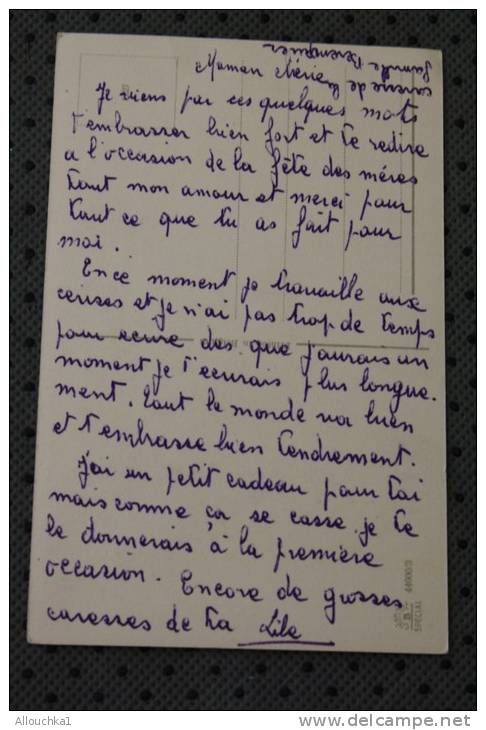 caresse de la
famille
Maman chérie
Je viens par ces quelques mots
t'embrasser bien fort et te redire
a l'occasion de la fête des mères
tout mon amour et merci pour
tout ce que tu as fait pour
moi.
En ce moment je travaille aux
cerises et je n'ai pas trop de temps
pour ecrire des que j'aurais un
moment je t'ecrirais plus longue.
ment. Tout le monde va bien
et t'embrasse bien tendrement.
J'ai un petit cadeau pour toi
mais comme ça se casse je te
le donnerais à la première
occasion. Encore de grosses
caresses de ta Lile
SPECIAL
Allouchka1
www.delcampe.net